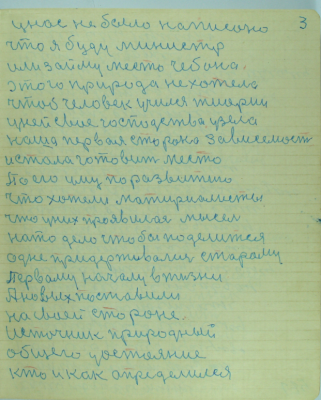 3
у нас не было написано
что я буду министр
или займу место чебана.
этого природа не хотела
чтоб человек учился теории
у ней свое господства узела
наша первая сторона зависемост
и стала готовить место
По его уму по развитию
что хотели матириалисты
что у них проявилая мысел
на то дело чтобы поделится
одне придержовалис старому
первому началу в жизни
А новых поставили
на своей стороне.
Источник природный
общего достояние
кто и как определился